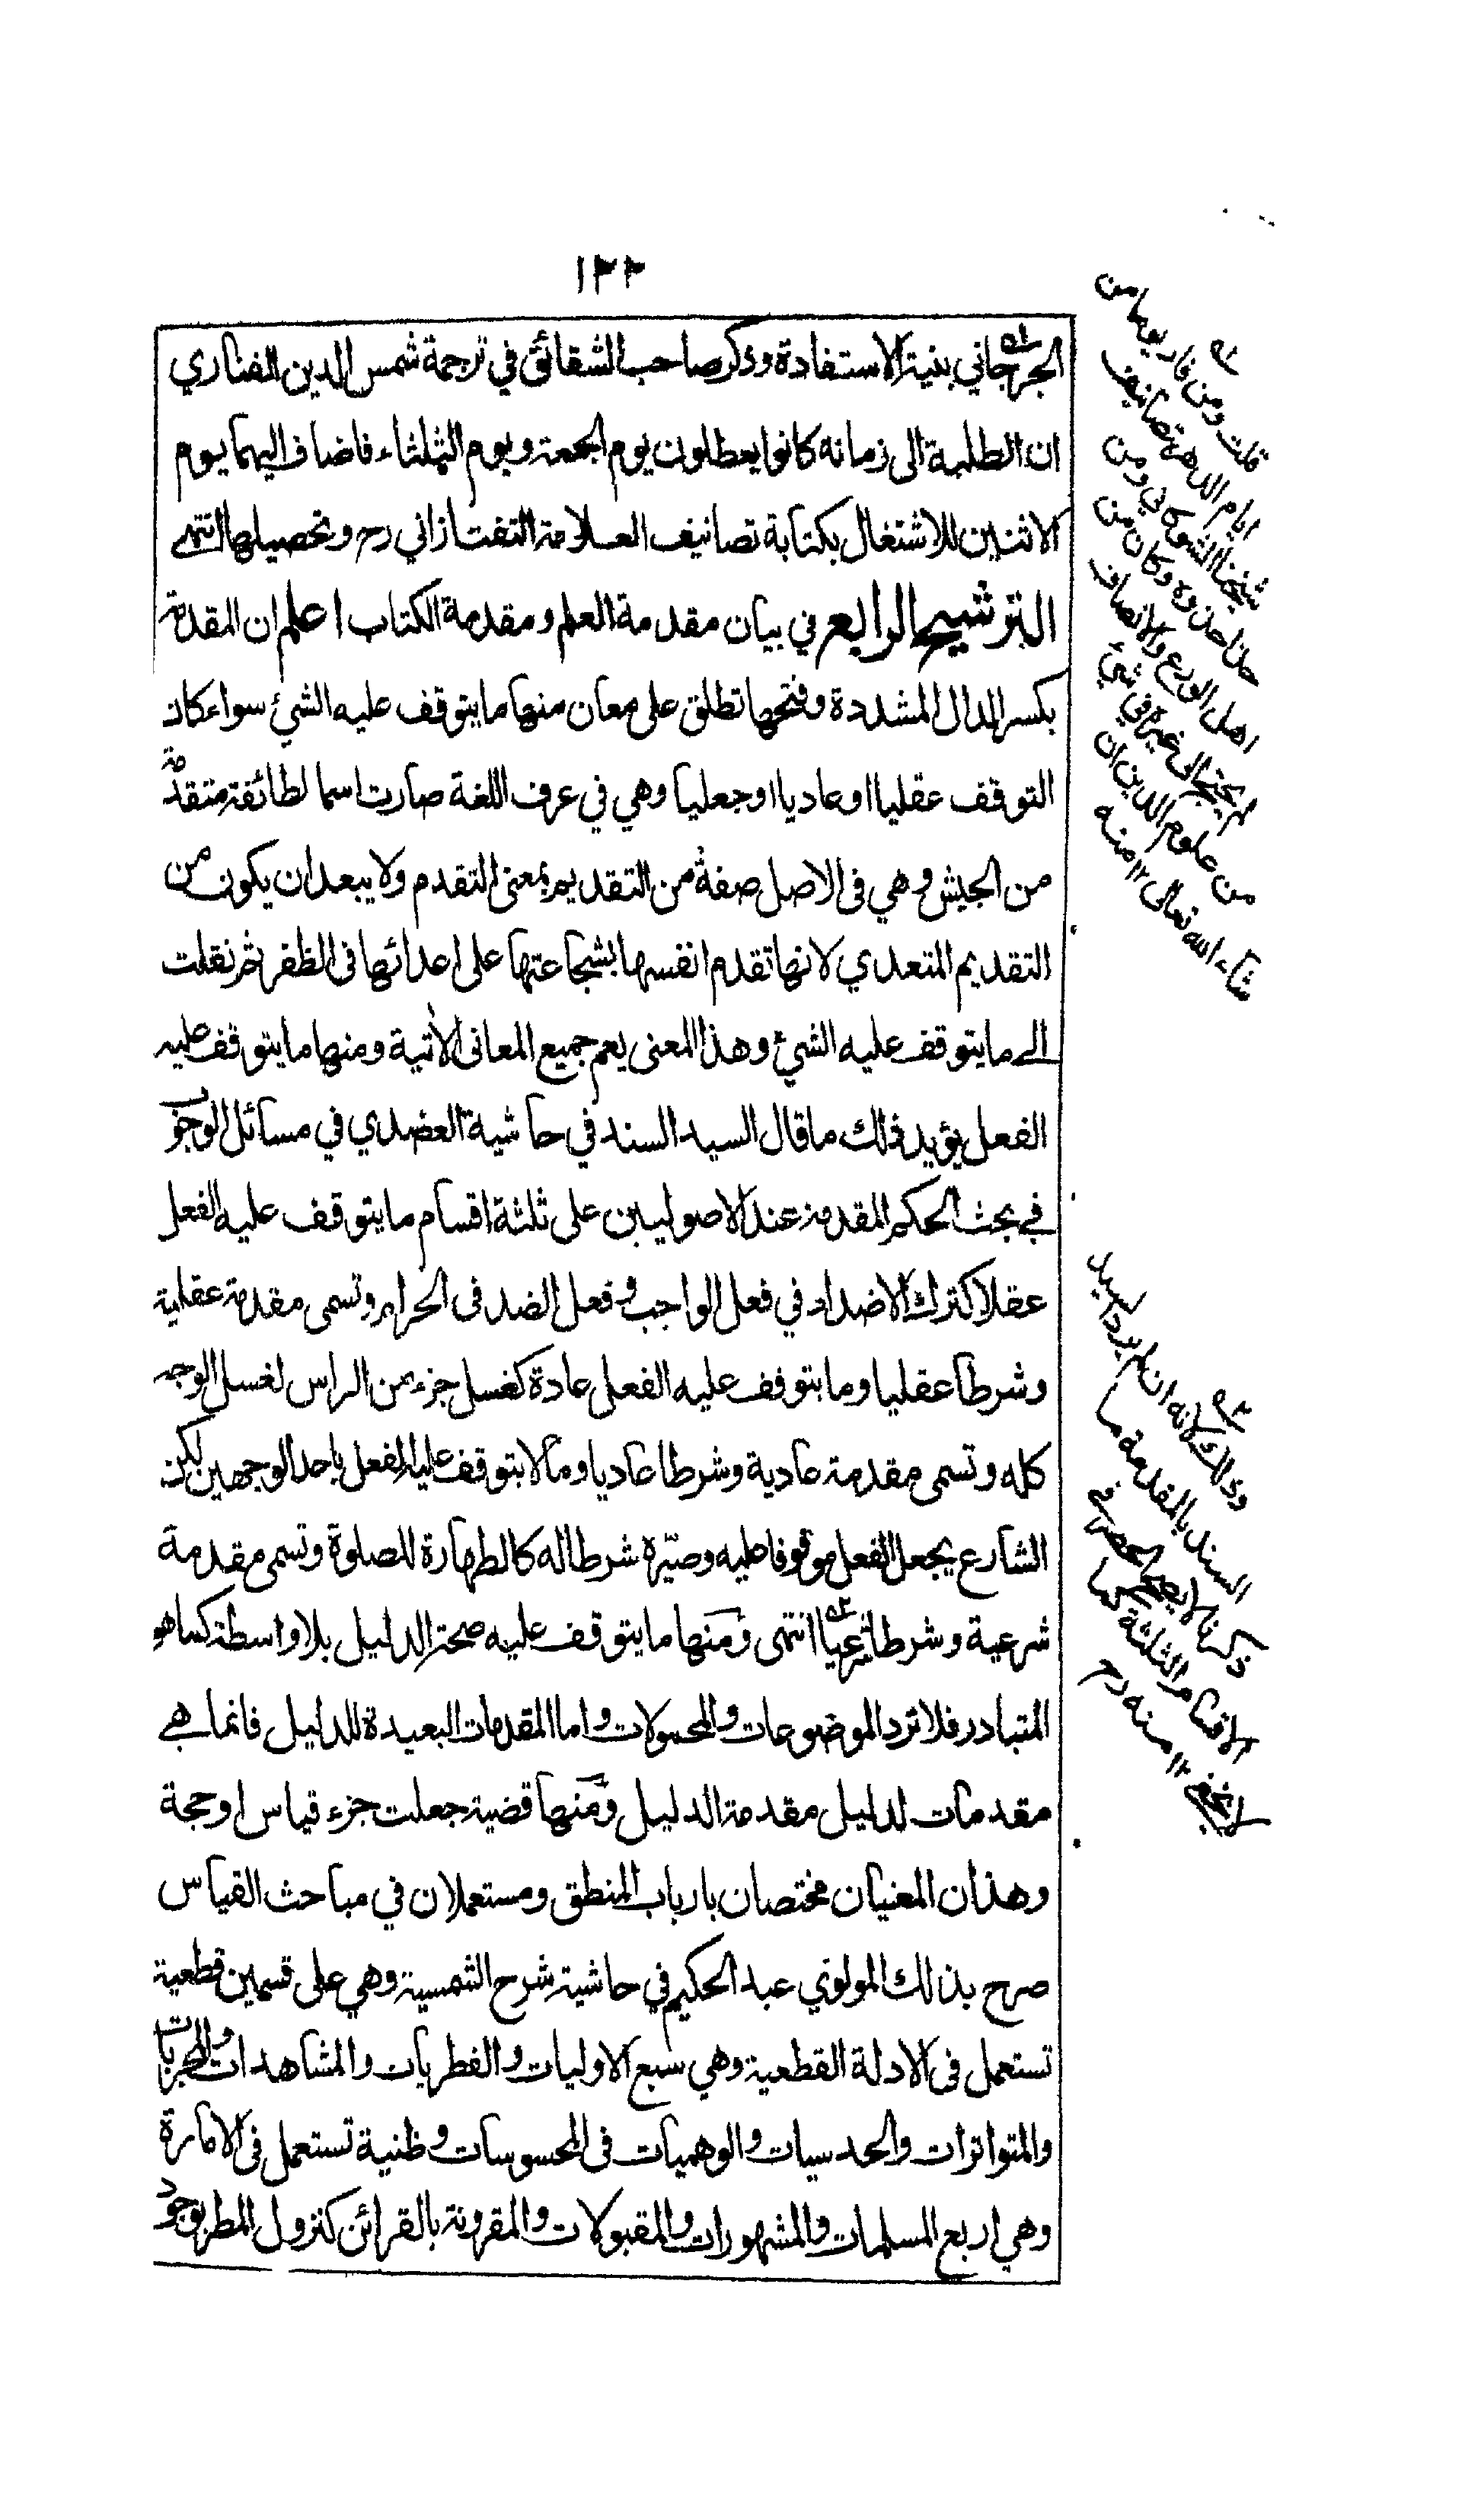 ١٢٢
الجرجاني بنية الاستفادة وذكر صاحب الشقائق في ترجمة شمس الدين الفناري
ان الطلبة الى زمانه كانوا يعطلون يوم الجمعة ويوم الثلثاء فاضاف اليهما يوم
الاثنين للاشتغال بكتابة تصانيف العلامة التفتازاني رح وتحصيلها انتهى
الترشيح الرابع في بيان مقدمة العلم ومقدمة الكتاب اعلم ان المقدمة
بكسر الدال المشددة وفتحها تطلق على معان منها ما يتوقف عليه الشئ سواء كان
التوقف عقليا او عاديا او جعليا وهي في عرف اللغة صارت اسما لطائفة متقدمة
من الجيش وهي في الاصل صفة من التقديم بمعنى التقدم ولا يبعد ان يكون من
التقديم المتعدي لانها تقدم انفسها بشجاعتها على اعدائها في الظفر ثم نقلت
الى ما يتوقف عليه الشئ وهذا المعنى يعم جميع المعاني الآتية ومنها ما يتوقف عليه
الفعل يؤيد ذلك ما قال السيد السند في حاشية العضدي في مسائل الوجوب
في بحث الحكم المقدمة عند الاصوليين على ثلثة اقسام ما يتوقف عليه الفعل
عقلا كترك الاضداد في فعل الواجب وفعل الضد في الحرام وتسمى مقدمة عقلية
وشرطا عقليا وما يتوقف عليه الفعل عادة كغسل جزء من الراس لغسل الوجه
كله وتسمى مقدمة عادية وشرطا عاديا وما لا يتوقف عليه الفعل باحد الوجهين لكن
الشارع يجعل الفعل موقوفا عليه وصيّره شرطا له كالطهارة للصلوة وتسمى مقدمة
شرعية وشرطا شرعيا انتهى ومنها ما يتوقف عليه صحة الدليل بلا واسطة كما هو
المتبادر فلا ترد الموضوعات والمحمولات واما المقدمات البعيدة للدليل فانما هي
مقدمات لدليل مقدمة الدليل ومنها قضية جعلت جزء قياس او حجة
وهذان المعنيان مختصان بارباب المنطق ومستعملان في مباحث القياس
صرح بذلك المولوي عبد الحكيم في حاشية شرح الشمسية وهي على قسمين قطعية
تستعمل في الادلة القطعية وهي سبع الاوليات والفطريات والمشاهدات والمجربات
والمتواترات والحدسيات والوهميات في المحسوسات وظنية تستعمل في الامارة
وهي اربع المسلمات والمشهورات والمقبولات والمقرونة بالقرائن كنزول المطر بوجود
قلت ومن فاز يوما من
ايام الدهر بتصانيف
شيخنا الشوكاني ومن
حذا حذوه وكان من
اهل الورع والانصاف
لم يحتج الى غيره في شئ
من علوم الدين ان
شاء الله تعالى ١٢ منه
وذلك لانه ان لم يرد السيد
السند بالمقدمة ما
ذكرنا لا يصح الحصر في
الاقسام الثلثة كما
لا يخفى ١٢ منه رح